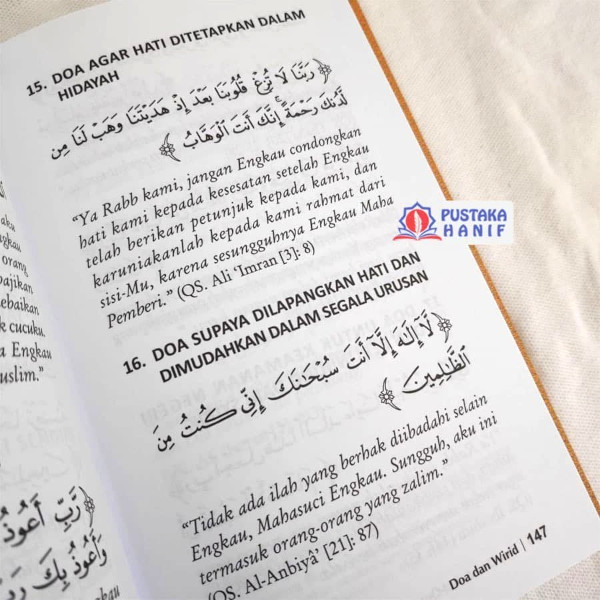 15. DOA AGAR HATI DITETAPKAN DALAM
HIDAYAH
﴿رَبَّنَا لَا تُزِغْ قُلُوبَنَا بَعْدَ إِذْ هَدَيْتَنَا وَهَبْ لَنَا مِن
لَّدُنكَ رَحْمَةً ۚ إِنَّكَ أَنتَ الْوَهَّابُ﴾
“Ya Rabb kami, jangan Engkau condongkan
hati kami kepada kesesatan setelah Engkau
telah berikan petunjuk kepada kami, dan
karuniakanlah kepada kami rahmat dari
sisi-Mu, karena sesungguhnya Engkau Maha
Pemberi.” (QS. Ali ‘Imran [3]: 8)
16. DOA SUPAYA DILAPANGKAN HATI DAN
DIMUDAHKAN DALAM SEGALA URUSAN
﴿لَّا إِلَٰهَ إِلَّا أَنتَ سُبْحَانَكَ إِنِّي كُنتُ مِنَ
الظَّالِمِينَ﴾
“Tidak ada ilah yang berhak diibadahi selain
Engkau, Mahasuci Engkau. Sungguh, aku ini
termasuk orang-orang yang zalim.”
(QS. Al-Anbiyâ’ [21]: 87)
Doa dan Wirid | 147
PUSTAKA
HANIF
cucuku.
Engkau
uslim.”
﴿رَبِّ أَعُوذُ
وَأَعُوذُ بِكَ رَبِّ